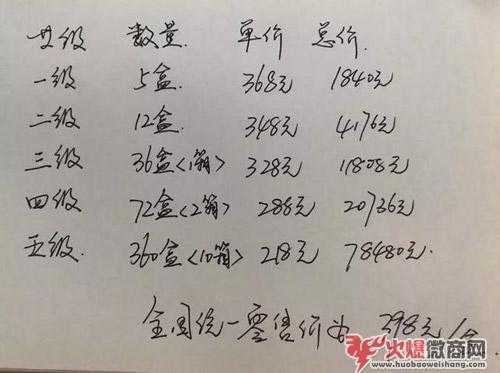 廿级 数量 单价 总价.
一级 5盒 368元 1840元
二级 12盒. 348元 4176元
三级 36盒<1箱> 328元 11808元
四级 72盒<2箱> 288元 20736元
五级. 360盒<10箱> 218元 78480元.
全国统一零售价为 398元/盒
火爆微商网
www.huobaoweishang.com